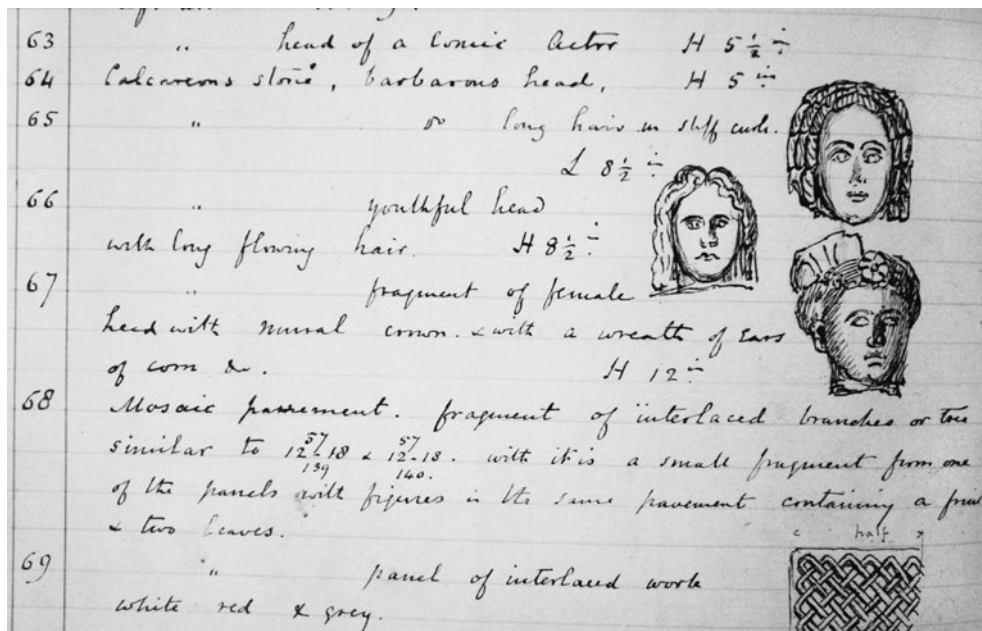 63 " head of a Comic Actor H 5 ½ in
64 Calcareous stone, barbarous head, H 5 in
65 " Do long hair in stiff curls.
L 8 ½ in
66 " youthful head
with long flowing hair. H 8 ½ in
67 " fragment of female
head with mural crown. & with a wreath of Ears
of corn &c. H 12 in
68 Mosaic pavement. fragment of interlaced branches or tree
57 57
similar to 12-18 & 12-18. with it is a small fragment from one
139 140.
of the panels with figures in the same pavement containing a fruit
& two leaves.
< half >
69 " panel of interlaced work
white red & grey.